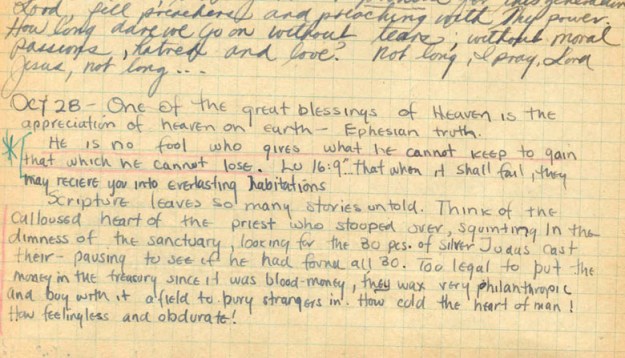 Lord, fill preachers and preaching with Thy power.
How long dare we go on without tears, without moral
passions, hatred and love? Not long, I pray, Lord
Jesus, not long...
Oct 28 - One of the great blessings of Heaven is the
appreciation of heaven on earth - Ephesian truth.
He is no fool who gives what he cannot keep to gain
that which he cannot lose. Lu 16:9 "..that when it shall fail, they
may recieve you into everlasting habitations
Scripture leaves so many stories untold. Think of the
calloused heart of the priest who stooped over, squinting in the
dimness of the sanctuary, looking for the 30 pcs. of silver Judas cast
their - pausing to see if he had found all 30. Too legal to put the
money in the treasury since it was blood-money, they wax very philanthropic
and buy with it a field to bury strangers in. How cold the heart of man!
How feelingless and obdurate!